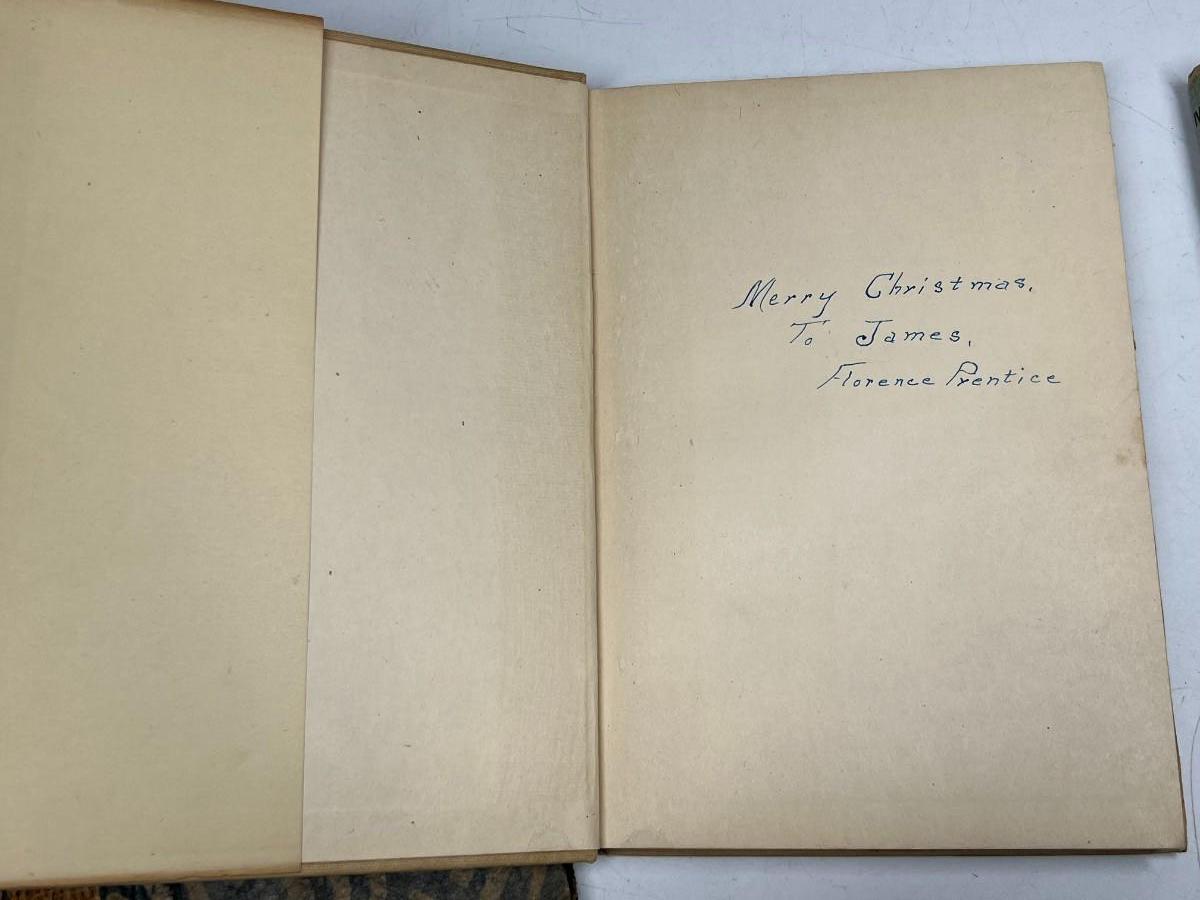 Merry Christmas,
To James,
Florence Prentice